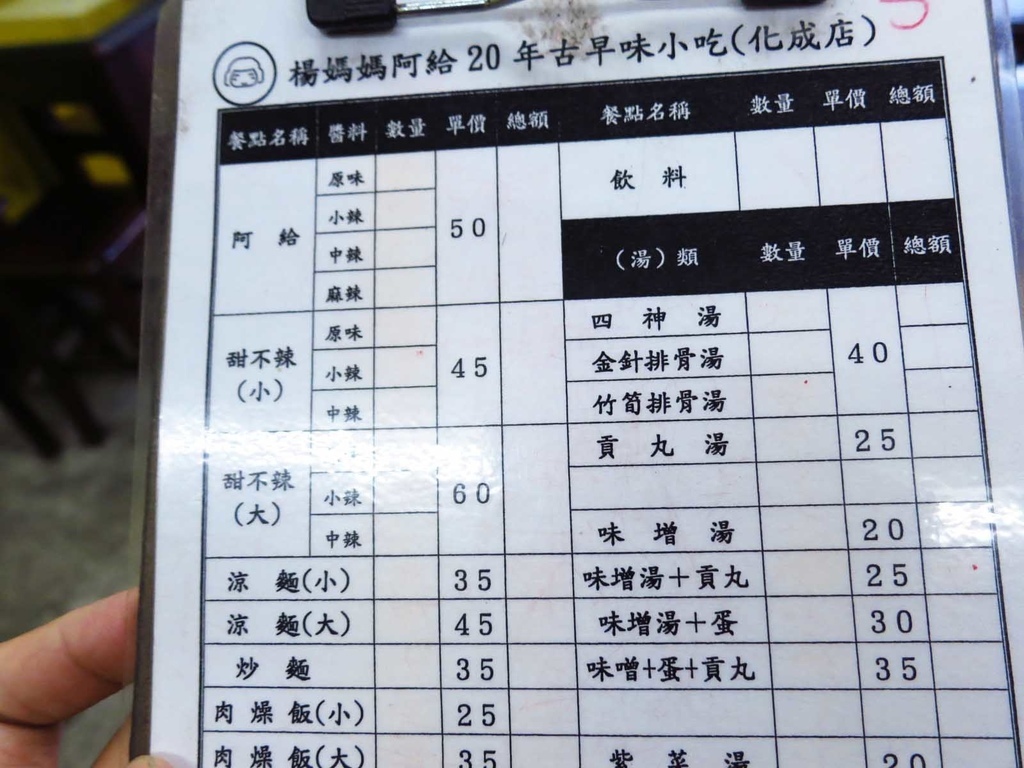 楊媽媽阿給20年古早味小吃(化成店)
餐點名稱 醬料 數量 單價 總額 餐點名稱 數量 單價 總額
阿給 原味 小辣 中辣 麻辣 50
飲料
(湯)類 數量 單價 總額
甜不辣(小) 原味 小辣 中辣 45
四神湯
金針排骨湯 40
竹筍排骨湯
甜不辣(大) 小辣 中辣 60
貢丸湯 25
味增湯 20
涼麵(小) 35 味增湯+貢丸 25
涼麵(大) 45 味增湯+蛋 30
炒麵 35 味噌+蛋+貢丸 35
肉燥飯(小) 25
肉燥飯(大) 35 紫菜湯 20